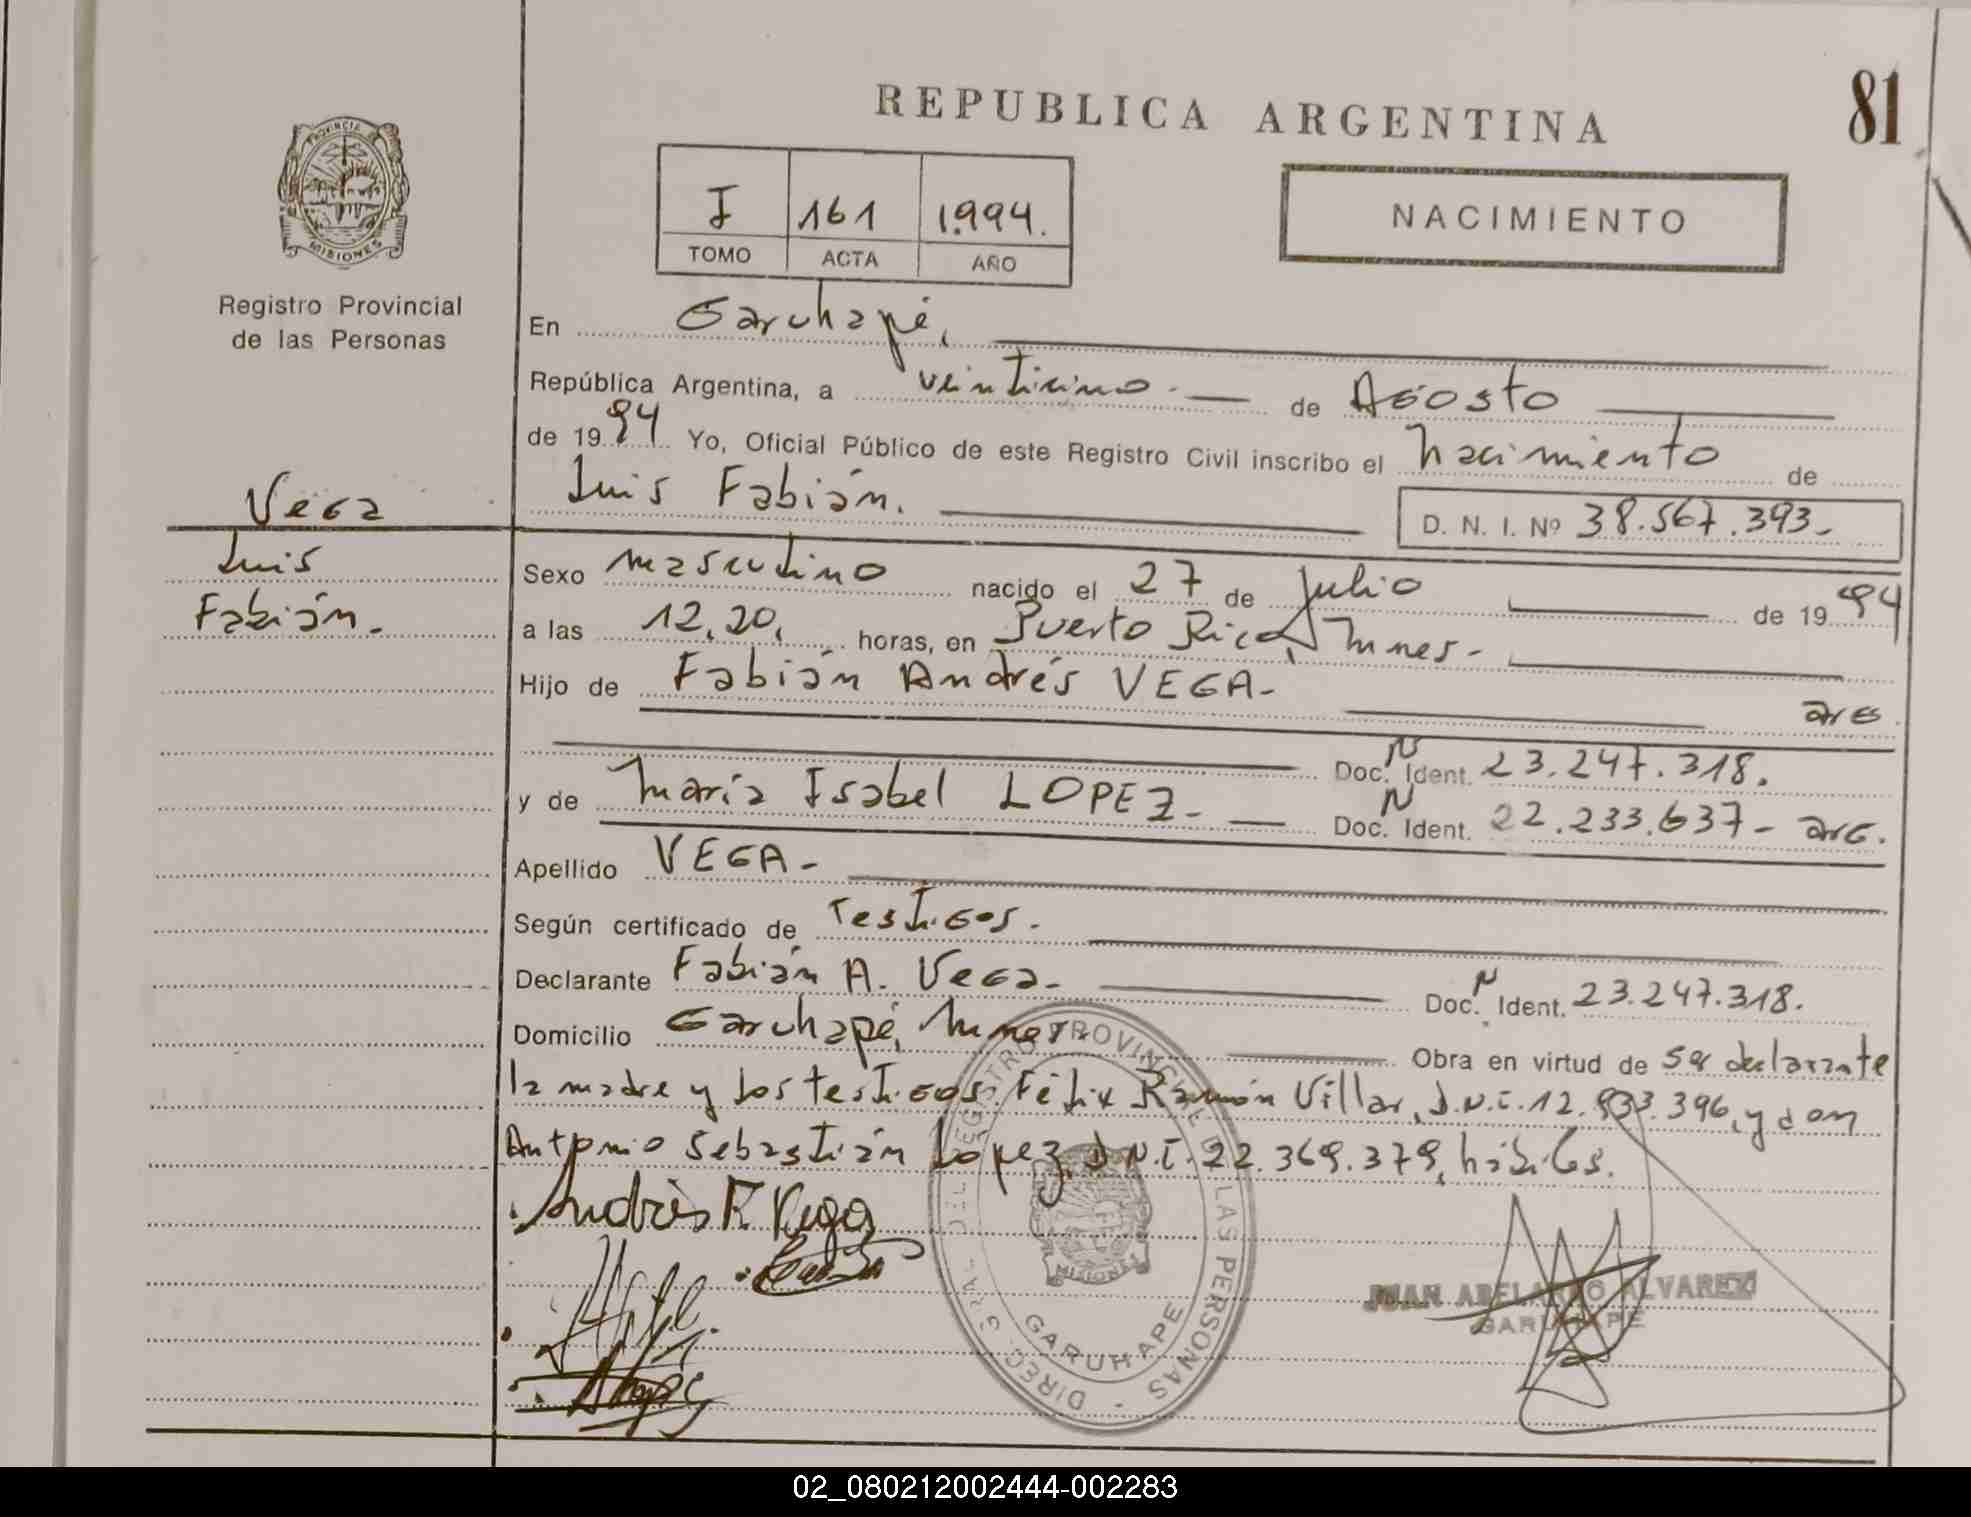 REPUBLICA ARGENTINA
81
PROVINCIA
MISIONES
Registro Provincial
de las Personas
I 161 1.994.
TOMO ACTA AÑO
NACIMIENTO
En Garuhapé,
República Argentina, a veinticinco.- de Agosto
de 1994 Yo, Oficial Público de este Registro Civil inscribo el nacimiento de
Luis Fabián.
D. N. I. Nº 38.567.393-
Vega
Luis
Fabián.-
Sexo masculino nacido el 27 de julio de 1994
a las 12,20, horas, en Puerto Rico, Mnes.-
Hijo de Fabián Andrés VEGA- arg.
Doc. N Ident. 23.247.318.
y de María Isabel LOPEZ- Doc. N Ident. 22.233.637- arg.
Apellido VEGA-
Según certificado de Testigos.-
Declarante Fabián A. Vega- Doc. N Ident. 23.247.318.
Domicilio Garuhapé, Mnes.- Obra en virtud de ser declarante
la madre y los testigos: Félix Ramón Villar, D.N.I. 12.933.396, y don
Antonio Sebastián Lopez, D.N.I. 22.369.379, hábiles.
Andrès F. Vega
DIREC. GRAL. DEL REGISTRO PROVINCIAL DE LAS PERSONAS -
MISIONES
GARUHAPE
JUAN ABELARDO ALVAREZ
GARUHAPE
02_080212002444-002283